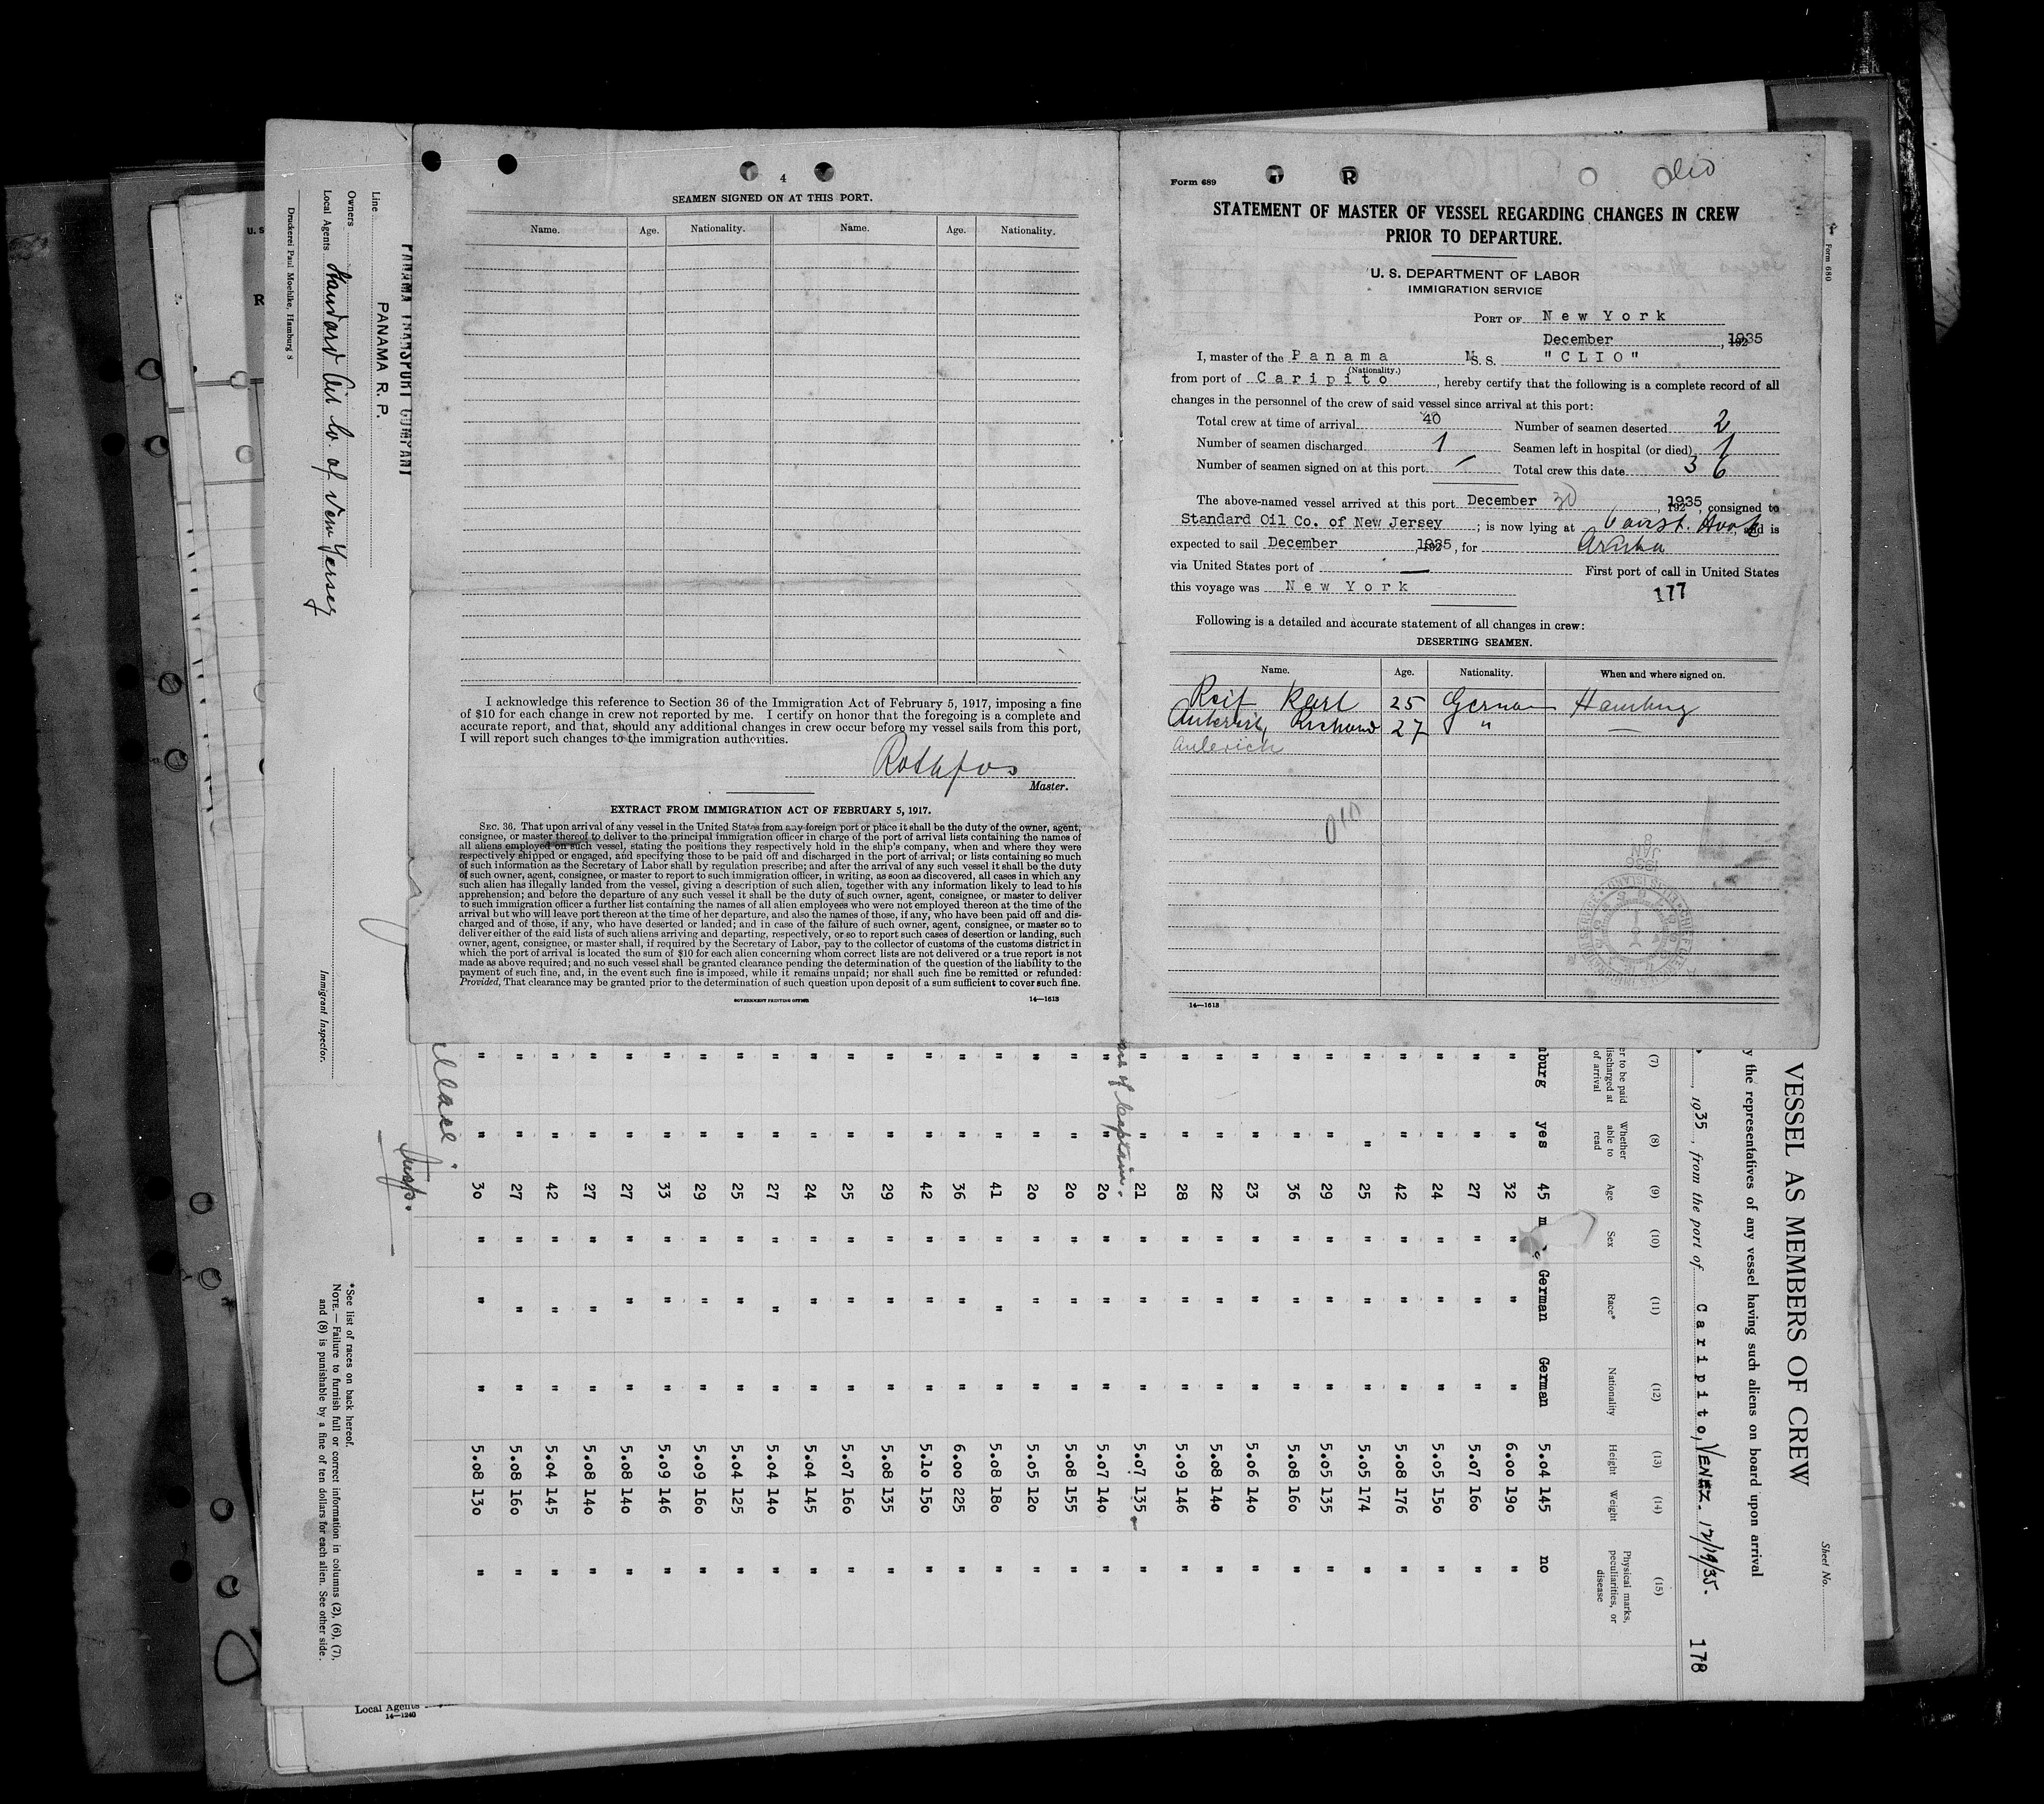 4
SEAMEN SIGNED ON AT THIS PORT.
Name. Age. Nationality. Name. Age. Nationality.
I acknowledge this reference to Section 36 of the Immigration Act of February 5, 1917, imposing a fine
of $10 for each change in crew not reported by me. I certify on honor that the foregoing is a complete and
accurate report, and that, should any additional changes in crew occur before my vessel sails from this port,
I will report such changes to the immigration authorities.
Rothfos
Master.
EXTRACT FROM IMMIGRATION ACT OF FEBRUARY 5, 1917.
SEC. 36. That upon arrival of any vessel in the United States from any foreign port or place it shall be the duty of the owner, agent,
consignee, or master thereof to deliver to the principal immigration officer in charge of the port of arrival lists containing the names of
all aliens employed on such vessel, stating the positions they respectively hold in the ship's company, when and where they were
respectively shipped or engaged, and specifying those to be paid off and discharged in the port of arrival; or lists containing so much
of such information as the Secretary of Labor shall by regulation prescribe; and after the arrival of any such vessel it shall be the duty
of such owner, agent, consignee, or master to report to such immigration officer, in writing, as soon as discovered, all cases in which any
such alien has illegally landed from the vessel, giving a description of such alien, together with any information likely to lead to his
apprehension; and before the departure of any such vessel it shall be the duty of such owner, agent, consignee, or master to deliver
to such immigration officer a further list containing the names of all alien employees who were not employed thereon at the time of the
arrival but who will leave port thereon at the time of her departure, and also the names of those, if any, who have been paid off and dis-
charged and of those, if any, who have deserted or landed; and in case of the failure of such owner, agent, consignee, or master so to
deliver either of the said lists of such aliens arriving and departing, respectively, or so to report such cases of desertion or landing, such
owner, agent, consignee, or master shall, if required by the Secretary of Labor, pay to the collector of customs of the customs district in
which the port of arrival is located the sum of $10 for each alien concerning whom correct lists are not delivered or a true report is not
made as above required; and no such vessel shall be granted clearance pending the determination of the question of the liability to the
payment of such fine, and, in the event such fine is imposed, while it remains unpaid; nor shall such fine be remitted or refunded:
Provided, That clearance may be granted prior to the determination of such question upon deposit of a sum sufficient to cover such fine.
GOVERNMENT PRINTING OFFICE 14—1613
Form 689
Clio
STATEMENT OF MASTER OF VESSEL REGARDING CHANGES IN CREW
PRIOR TO DEPARTURE.
U. S. DEPARTMENT OF LABOR
IMMIGRATION SERVICE
PORT OF New York
December , 1935
I, master of the Panama M S. S. "CLIO"
(Nationality.)
from port of Caripito, hereby certify that the following is a complete record of all
changes in the personnel of the crew of said vessel since arrival at this port:
Total crew at time of arrival 40 Number of seamen deserted 2
Number of seamen discharged 1 Seamen left in hospital (or died) 1
Number of seamen signed on at this port — Total crew this date 36
The above-named vessel arrived at this port December 30 , 1935, consigned to
Standard Oil Co. of New Jersey ; is now lying at Const. Hook, and is
expected to sail December , 1935, for Aruba
via United States port of — First port of call in United States
this voyage was New York
177
Following is a detailed and accurate statement of all changes in crew:
DESERTING SEAMEN.
Name. Age. Nationality. When and where signed on.
Reif Karl 25 German Hamburg
Richard 27 " —
Aulerich
14—1613
Line PANAMA TRANSPORT COMPANY
PANAMA R. P.
Owners
Local Agents Standard Oil Co. of New Yersey
Druckerei Paul Moehlke, Hamburg 8
Immigrant Inspector.
Form 680
Sheet No.
VESSEL AS MEMBERS OF CREW
y the representatives of any vessel having such aliens on board upon arrival
, 1935, from the port of Caripito, VENEZ. 12/19/35. 178
(7) (8) (9) (10) (11) (12) (13) (14) (15)
er to be paid discharged at of arrival Whether able to read Age Sex Race* Nationality Height Weight Physical marks, peculiarities, or disease
burg yes 45 m German German 5.04 145 no
" " 32 " " " 6.00 190 "
" " 27 " " " 5.07 160 "
" " 24 " " " 5.05 150 "
" " 42 " " " 5.08 176 "
" " 25 " " " 5.05 174 "
" " 29 " " " 5.05 135 "
" " 36 " " " 5.08 160 "
" " 23 " " " 5.06 140 "
" " 22 " " " 5.08 140 "
" " 28 " " " 5.09 146 "
" " 21 " " " 5.07 135 "
of Captain.
" " 20 " " " 5.07 140 "
" " 20 " " " 5.08 155 "
" " 20 " " " 5.05 120 "
" " 41 " " " 5.08 180 "
" " 36 " " " 6.00 225 "
" " 42 " " " 5.10 150 "
" " 29 " " " 5.08 135 "
" " 25 " " " 5.07 160 "
" " 24 " " " 5.04 145 "
" " 27 " " " 5.04 140 "
" " 25 " " " 5.04 125 "
" " 29 " " " 5.09 160 "
" " 33 " " " 5.09 146 "
" " 27 " " " 5.08 140 "
" " 27 " " " 5.08 140 "
" " 42 " " " 5.04 145 "
" " 27 " " " 5.08 160 "
" " 30 " " " 5.08 130 "
Insp.
*See list of races on back hereof.
NOTE. — Failure to furnish full or correct information in columns (2), (6), (7),
and (8) is punishable by a fine of ten dollars for each alien. See other side.
Local Agents
14—1240